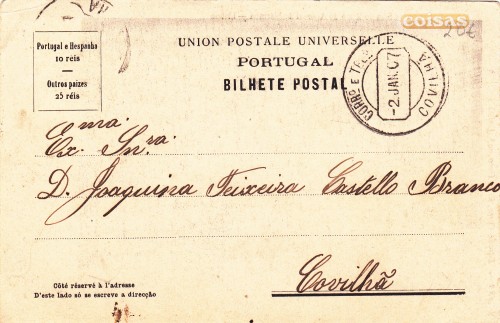 coisas
20€
Portugal e Hespanha
10 réis
Outros paizes
25 réis
UNION POSTALE UNIVERSELLE
PORTUGAL
BILHETE POSTAL
-2.JAN.07
COVILHÃ
Exma. Snra.
D. Joaquina Teixeira Castello Branco
Covilhã
Côté réservé à l'adresse
D'este lado só se escreve a direcção